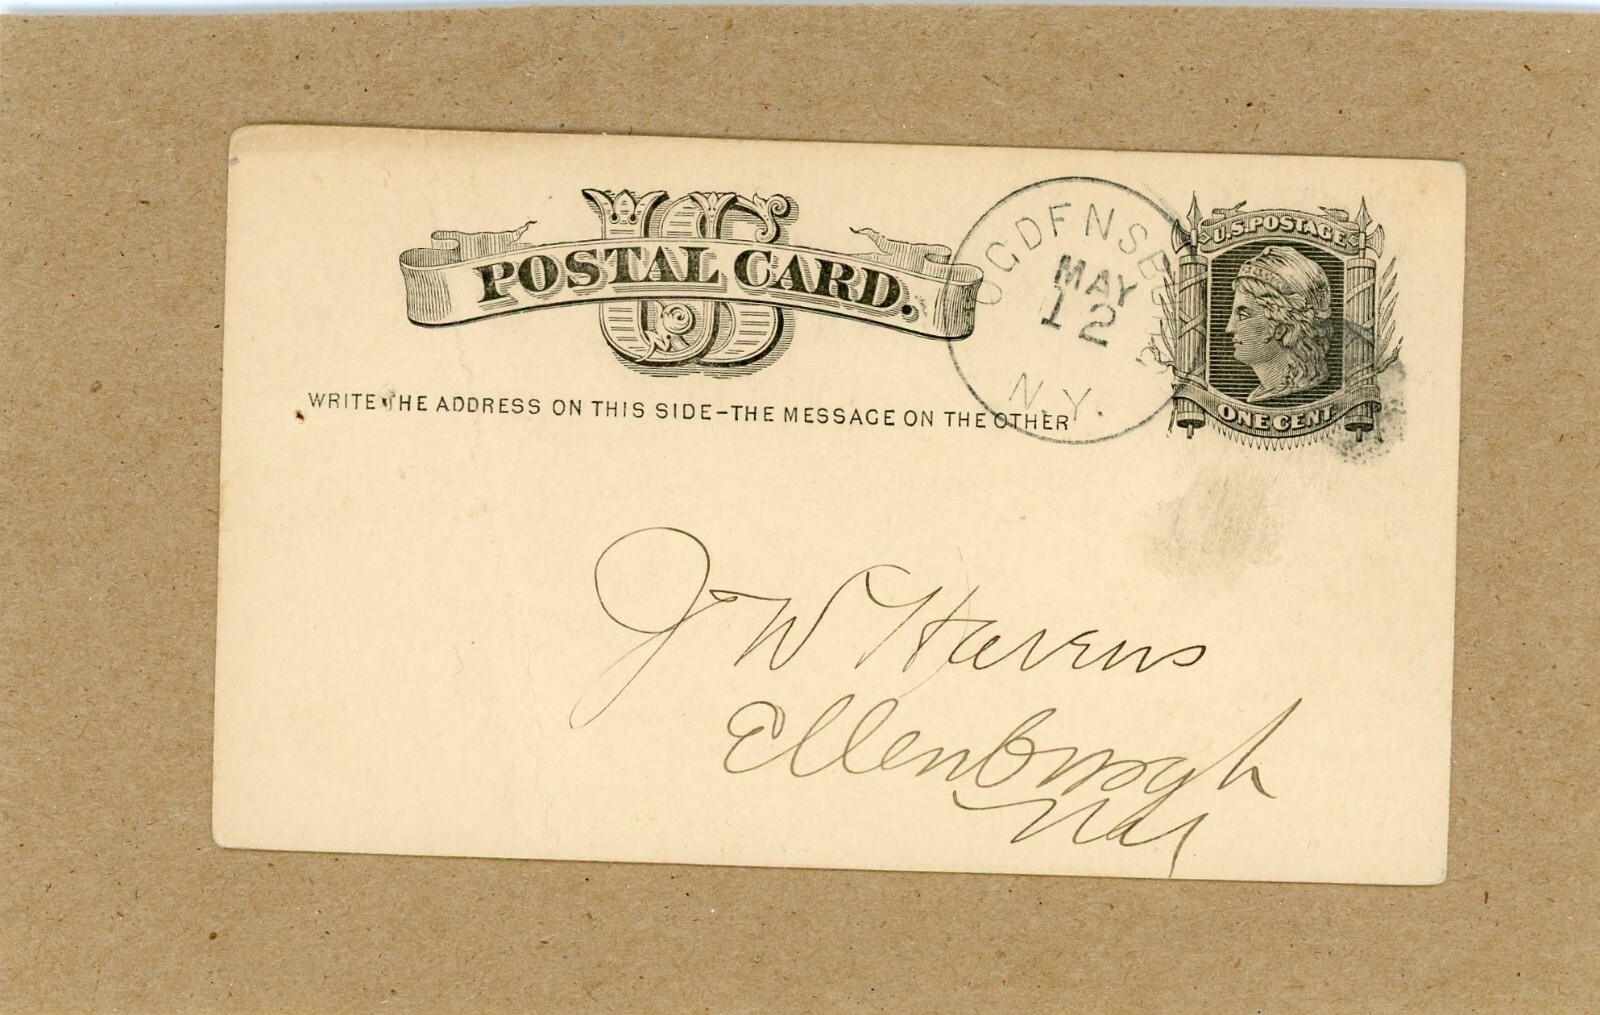 US
POSTAL CARD.
WRITE THE ADDRESS ON THIS SIDE-THE MESSAGE ON THE OTHER
OGDENSBURG
MAY
12
N.Y.
U.S. POSTAGE
ONE CENT
J W Havens
Ellenburgh